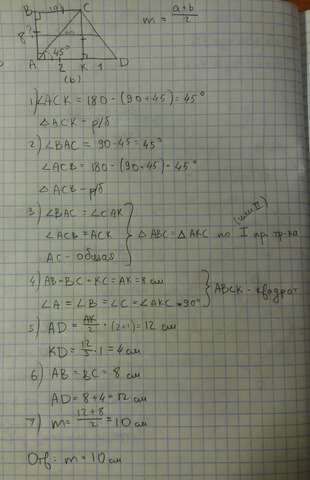 B (a) C
m = a+b/2
8
45°
A 2 K 1 D
(b)
1) ∠ACK = 180 - (90+45) = 45°
△ACK - р/б
2) ∠BAC = 90-45 = 45°
∠ACB = 180 - (90+45) = 45°
△ACB - р/б
3) ∠BAC = ∠CAK
∠ACB = ACK
AC - общая
} △ABC = △AKC по I пр. тр-ка
(или II)
4) AB=BC=KC=AK=8 см
∠A = ∠B = ∠C = ∠AKC = 90°
} ABCK - квадрат
5) AD = AK/2 · (2+1) = 12 см
KD = 12/3 · 1 = 4 см
6) AB = BC = 8 см
AD = 8+4 = 12 см
7) m = 12+8/2 = 10 см
Отв: m = 10 см